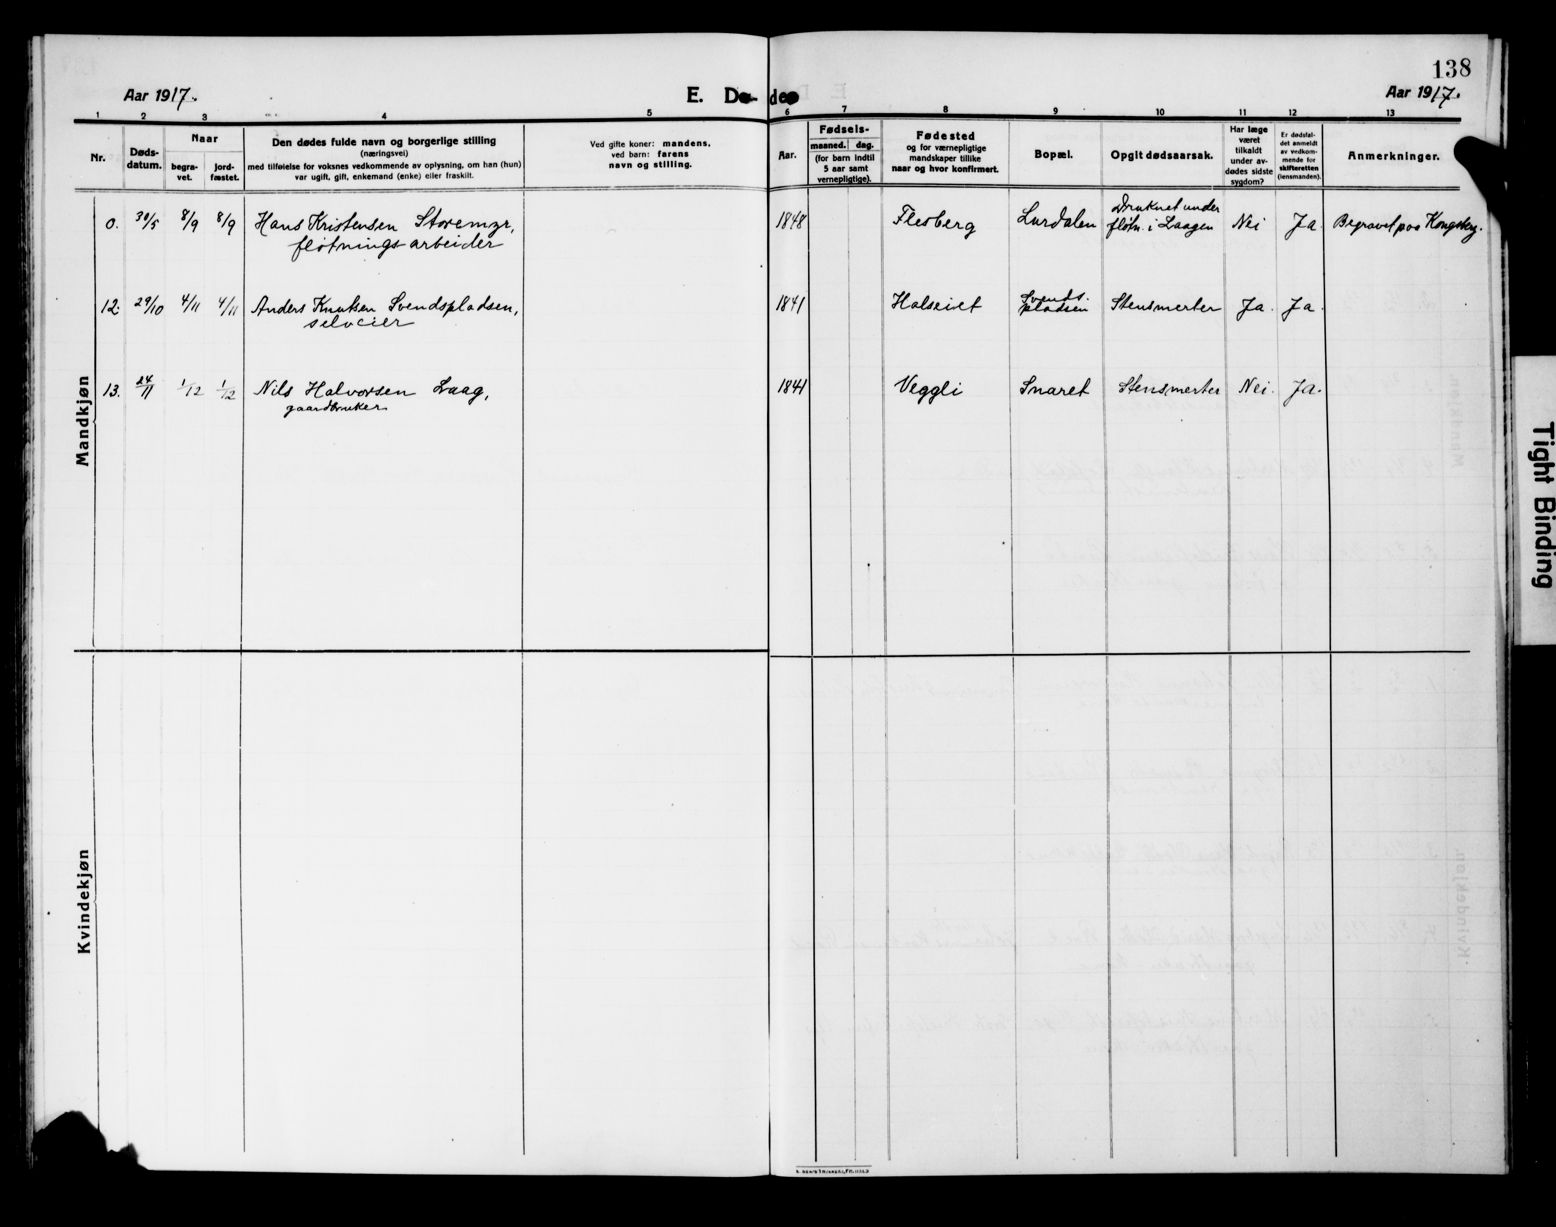 138
Aar 1917.
E. Døde
Aar 1917.
1 2 3 4 5 6 7 8 9 10 11 12 13
Nr.
Døds-
datum.
Naar
begra-
vet.
jord-
fæstet.
Den dødes fulde navn og borgerlige stilling
(næringsvei)
med tilføielse for voksnes vedkommende av oplysning, om han (hun)
var ugift, gift, enkemand (enke) eller fraskilt.
Ved gifte koner: mandens.
ved barn: farens
navn og stilling.
Aar.
Fødsels-
maaned. dag.
(for barn indtil
5 aar samt
vernepligtige).
Fødested
og for værnepligtige
mandskaper tillike
naar og hvor konfirmert.
Bopæl.
Opgit dødsaarsak.
Har læge
været
tilkaldt
under av-
dødes sidste
sygdom?
Er dødsfal-
det anmeldt
av vedkom-
mende for
skifteretten
(lensmanden).
Anmerkninger.
Mandkjøn
0. 30/5 8/9 8/9 Hans Kristensen Storemyr,
fløtningsarbeider
1848 Flesberg Lurdalen
Druknet under
fløtn. i Laagen
Nei Ja Begravet paa Kongsberg.
12. 29/10 4/11 4/11 Anders Knutsen Svendspladsen,
selveier
1841
Svends-
pladsen
Stensmerter Ja. Ja.
13. 24/11 1/12 1/12 Nils Halvorsen Laag,
gaardbruker
1841 Veggli Snaret Stensmerter Nei. Ja.
Kvindekjøn
Tight Binding